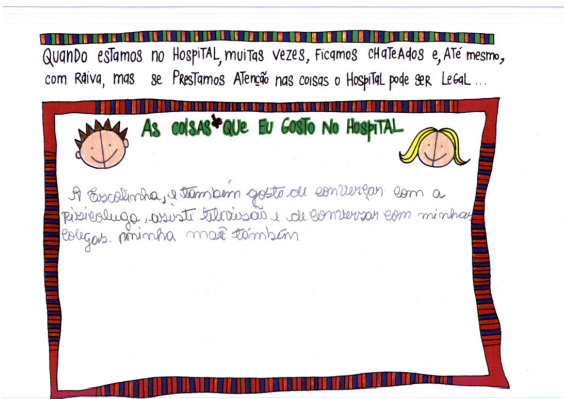 QUANDO ESTAMOS NO HOSPITAL, MUITAS VEZES, FICAMOS CHATEADOS E, ATÉ MESMO,
COM RAIVA, MAS SE PRESTAMOS ATENÇÃO NAS COISAS O HOSPITAL PODE SER LEGAL...
AS COISAS QUE EU GOSTO NO HOSPITAL
A Escolinha, e também gosto de converçar com a
pisicologa, asisti televisão e de conversar com minhas
colegas. minha maê também